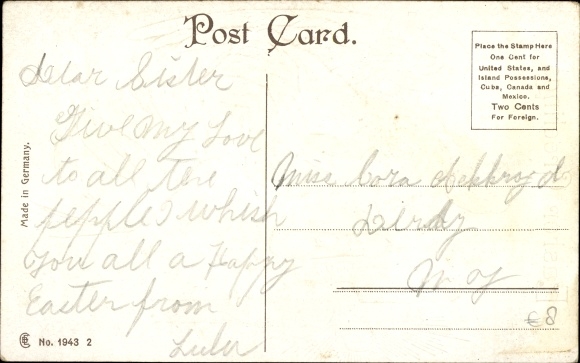 Post Card.
Place the Stamp Here
One Cent for
United States, and
Island Possessions,
Cuba, Canada and
Mexico.
Two Cents
For Foreign.
Dear Sister
Give My Love
to all the
I whish
you all a Happy
Easter from
Lulu
Miss Cora
N Y
Made in Germany.
No. 1943 2
€8